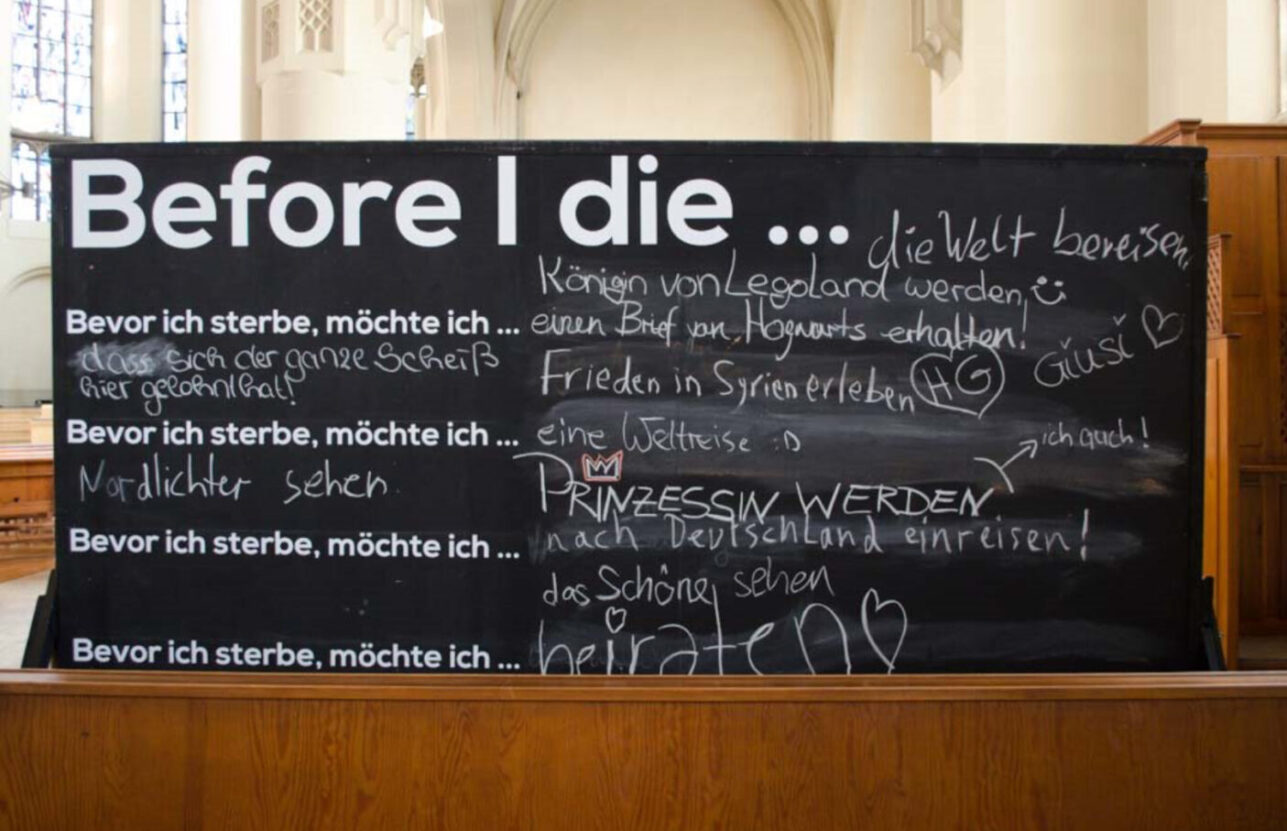 Before I die ...
die Welt bereisen.
Königin von Legoland werden,
Bevor ich sterbe, möchte ich ... einen Brief von Hogwarts erhalten!
Giusi
dass sich der ganze Scheiß
hier gelohnt hat!
Frieden in Syrien erleben HG
Bevor ich sterbe, möchte ich ... eine Weltreise :D
ich auch!
Nordlichter sehen.
PRINZESSIN WERDEN
Bevor ich sterbe, möchte ich ... nach Deutschland einreisen!
das Schöne sehen
Bevor ich sterbe, möchte ich ... heiraten